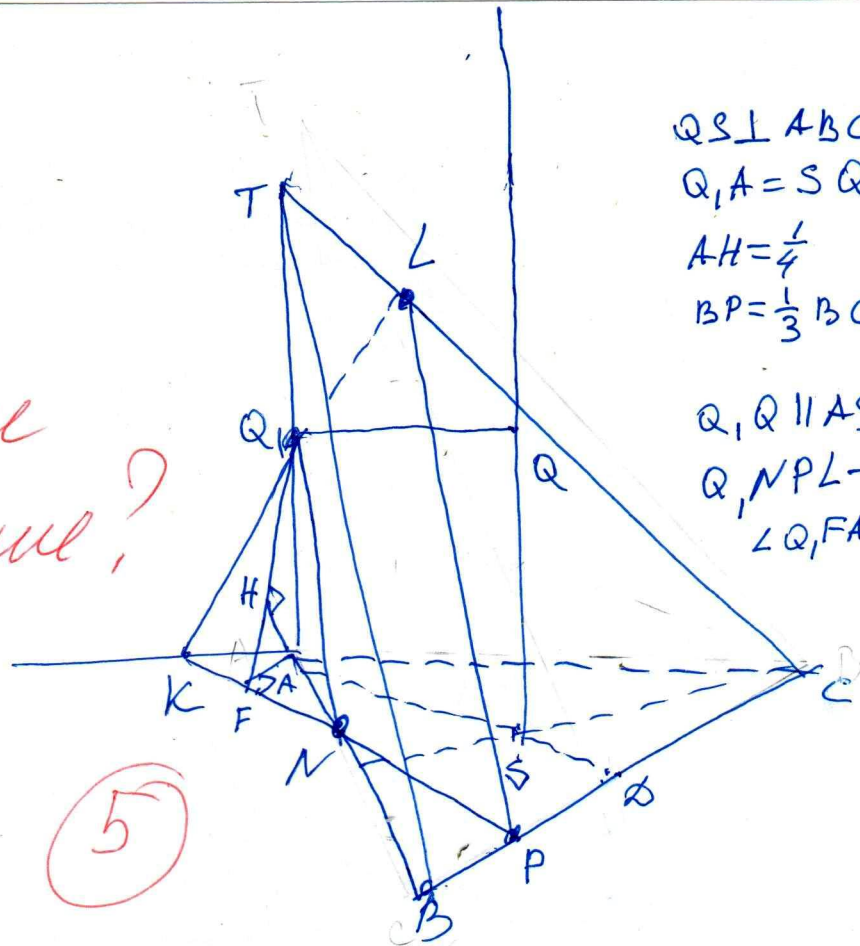 QS⊥ABC
Q₁A=SQ
AH=1/4
BP=1/3 BC
Q₁Q∥AS
Q₁NPL-
∠Q₁FA
T
L
Q₁
Q
H
A
K
F
C
N
S
D
5
P
B
?